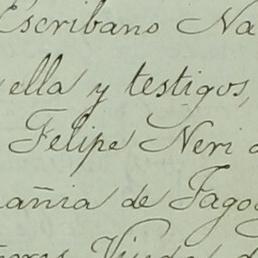 Escribano Na
ella y testigos,
Felipe Neri d
añia de Fago
Viuda d